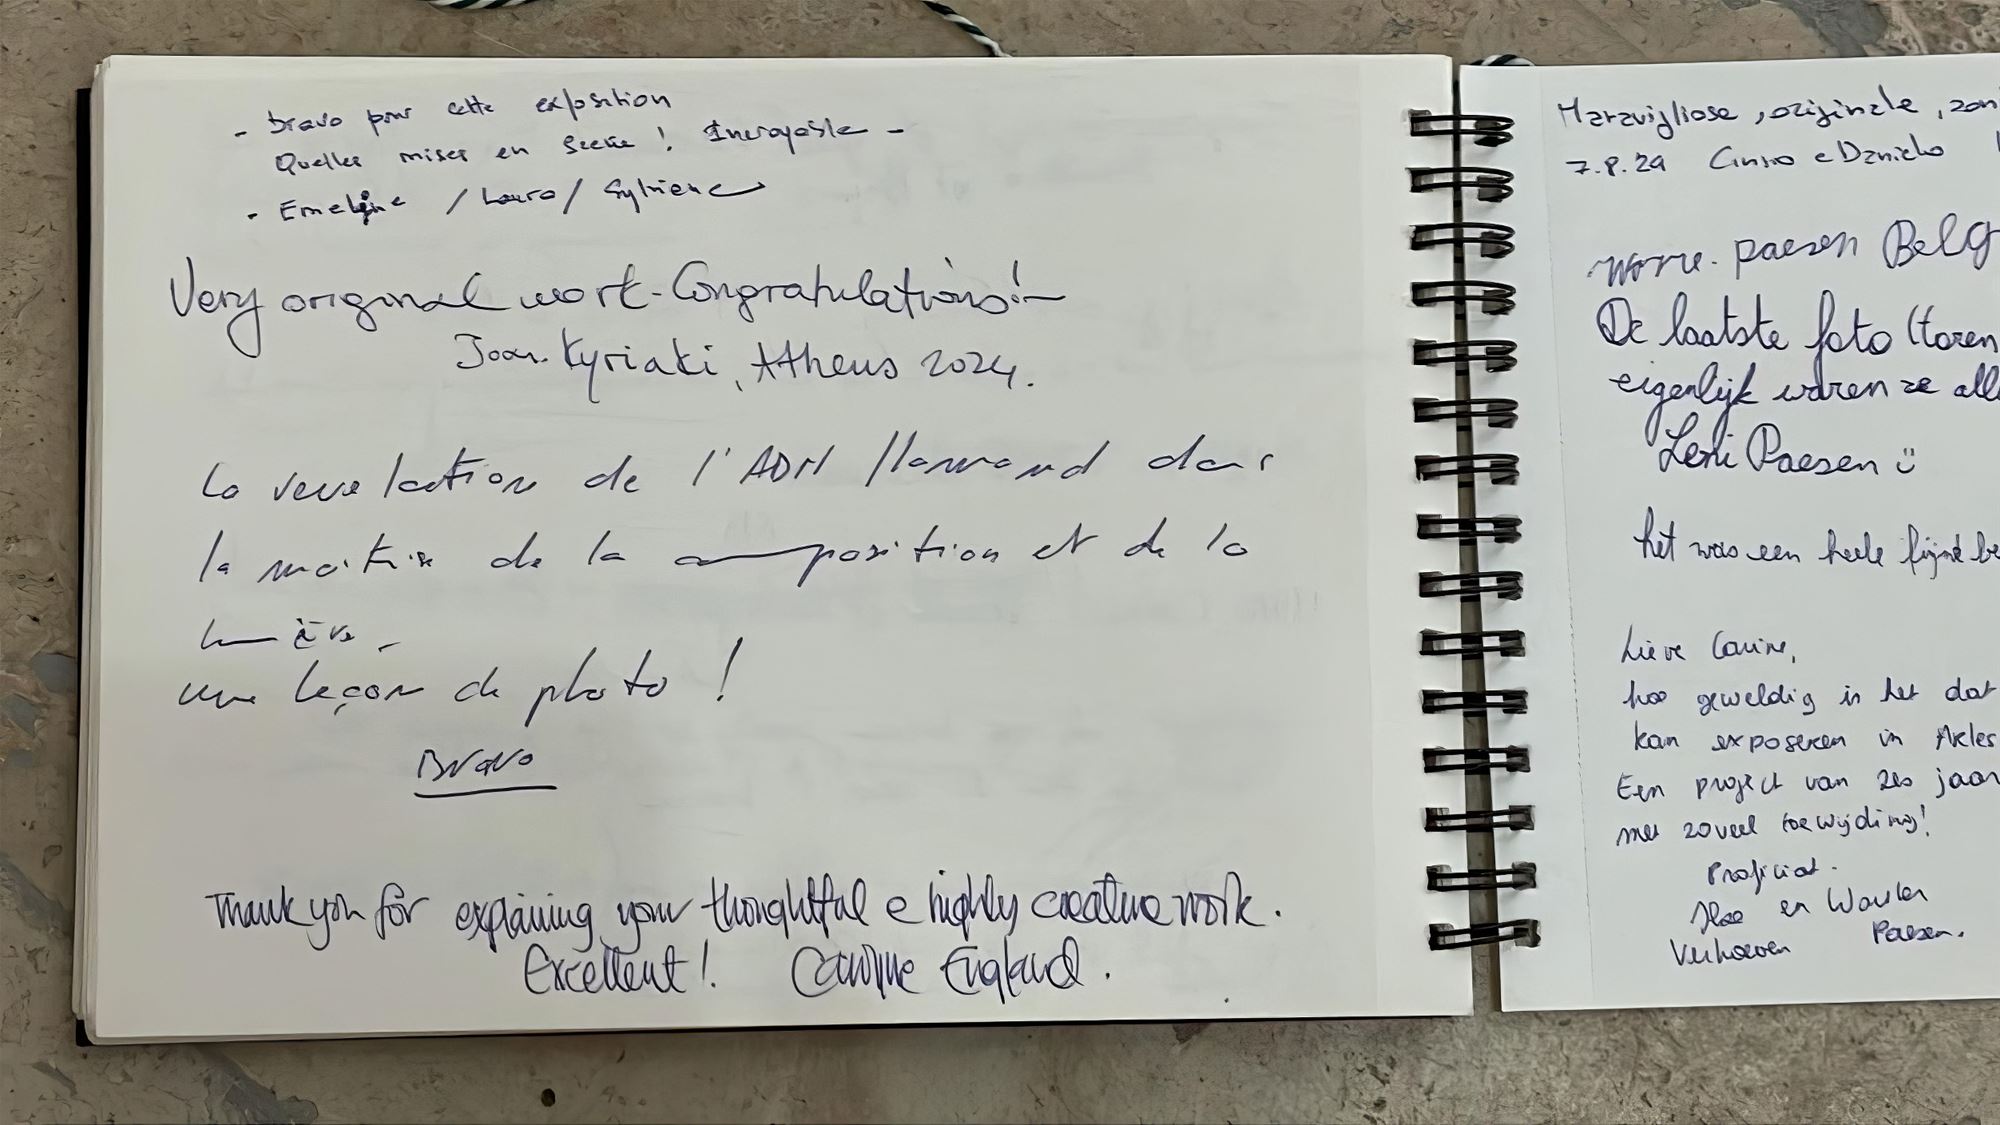 - bravo pour cette exposition
Quelles mises en scene ! Incroyable -
- Emeline / Laura / Sylviane
Very original work - Congratulations! -
Joan. Kyriaki, Athens 2024.
La revelation de l'ADN flammand dans
la maitrise de la composition et de la
lumière.
une leçon de photo !
Bravo
Thank you for explaining your thoughtful & highly creative work.
Excellent! Caroline England.
Maravigliose, originale,
7.8.24 e
Paesen Belg
De laatste foto (toren
eigenlijk waren ze all
Leni Paesen ü
het was een hele fijne be
Lieve Carine,
hoe geweldig is het dat
kan exposeren in Arles
Een project van zes jaar
met zoveel toewijding!
Proficiat.
Ilse en Wouter
Verhoeven Paesen.